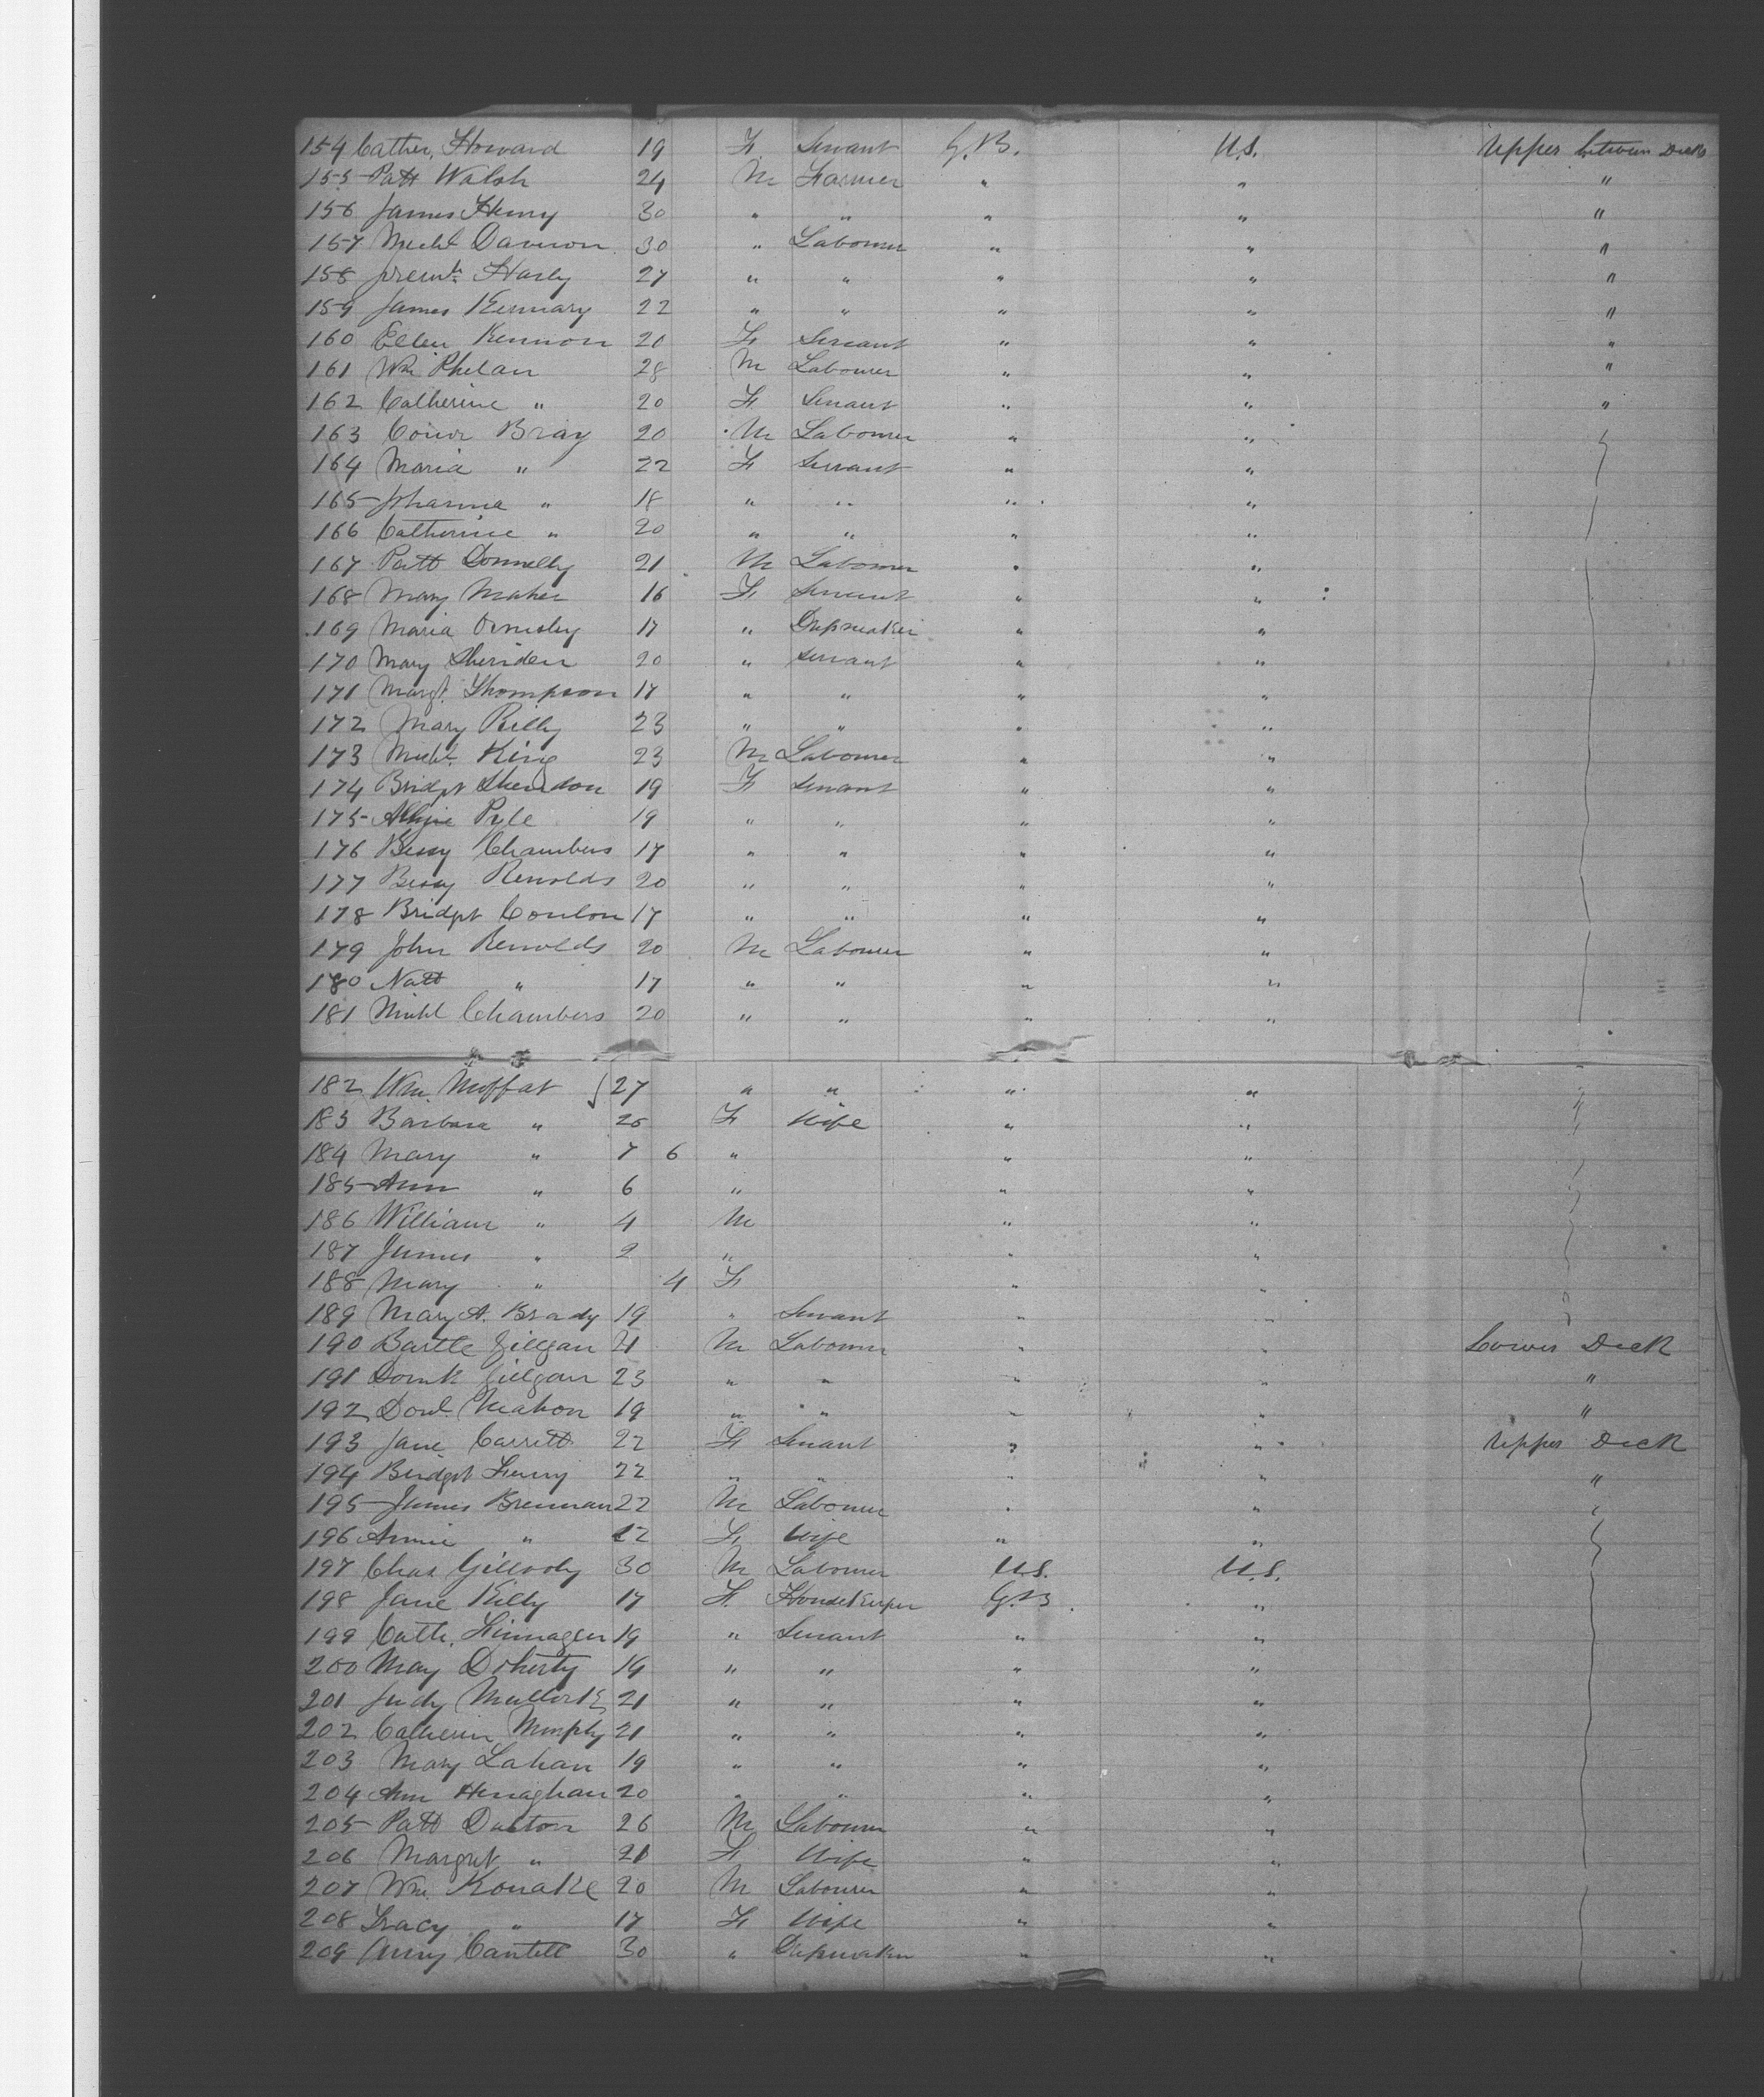 154 Cather. Howard 19 F Servant G.B. U.S. Upper between Decks
155 Patt Walsh 24 M Farmer " " "
156 James Henry 30 " " " " "
157 Michl Davison 30 " Labourer " " "
158 Harly 27 " " " " "
159 James Kernary 22 " " " " "
160 Ellen Kennon 20 F Servant " " "
161 Wm Phelan 28 M Labourer " " "
162 Catherine " 20 F Servant " " "
163 Bray 20 M Labourer " "
164 Maria " 22 F Servant " "
165 Johanna " 18 " " " "
166 Catherine " 20 " " " "
167 Patt Donnelly 21 M Labourer " "
168 Mary Maher 16 F Servant " "
169 Maria Ormsby 17 " Dressmaker " "
170 Mary Sheriden 20 " Servant " "
171 Margt. Thompson 17 " " " "
172 Mary Rilly 23 " " " "
173 Michl. King 23 M Labourer " "
174 Bridgt Sheridon 19 F Servant " "
175 Pyle 19 " " " "
176 Bessy Chambers 17 " " " "
177 Bessy Renolds 20 " " " "
178 Bridgt Conlon 17 " " " "
179 John Renolds 20 M Labourer " "
180 Natt " 17 " " " "
181 Michl Chambers 20 " " " "
182 Wm. Moffat 27 " " " "
183 Barbara " 25 F Wife " "
184 Mary " 7 6 " " "
185 Ann " 6 " " "
186 William " 4 M " "
187 James " 2 " " "
188 Mary " 4 F " "
189 Mary A. Brady 19 " Servant " "
190 Bartle Gillgan 21 M Labourer " " Lower Deck
191 Domk Gillgan 23 " " " " "
192 Danl. Mahon 19 " " " " "
193 Jane Garrett 22 F Servant " " Upper Deck
194 Bridgt 22 " " " " "
195 James Brennan 22 M Labourer " "
196 Annie " 22 F Wife " "
197 Chas Gillooly 30 M Labourer U.S. U.S.
198 Jane Killy 17 F. Housekeeper G.B. "
199 Cath. Finnagen 19 " Servant " "
200 May Doherty 19 " " " "
201 Judy 21 " " " "
202 Catherin Murphy 21 " " " "
203 Mary Lahan 19 " " " "
204 Ann Henaghan 20 " " " "
205 Patt Dalton 26 M Labourer " "
206 Margret " 21 F Wife " "
207 Wm. Konakle 20 M Labourer " "
208 Tracy " 17 F Wife " "
209 Cantell 30 " Dressmaker " "